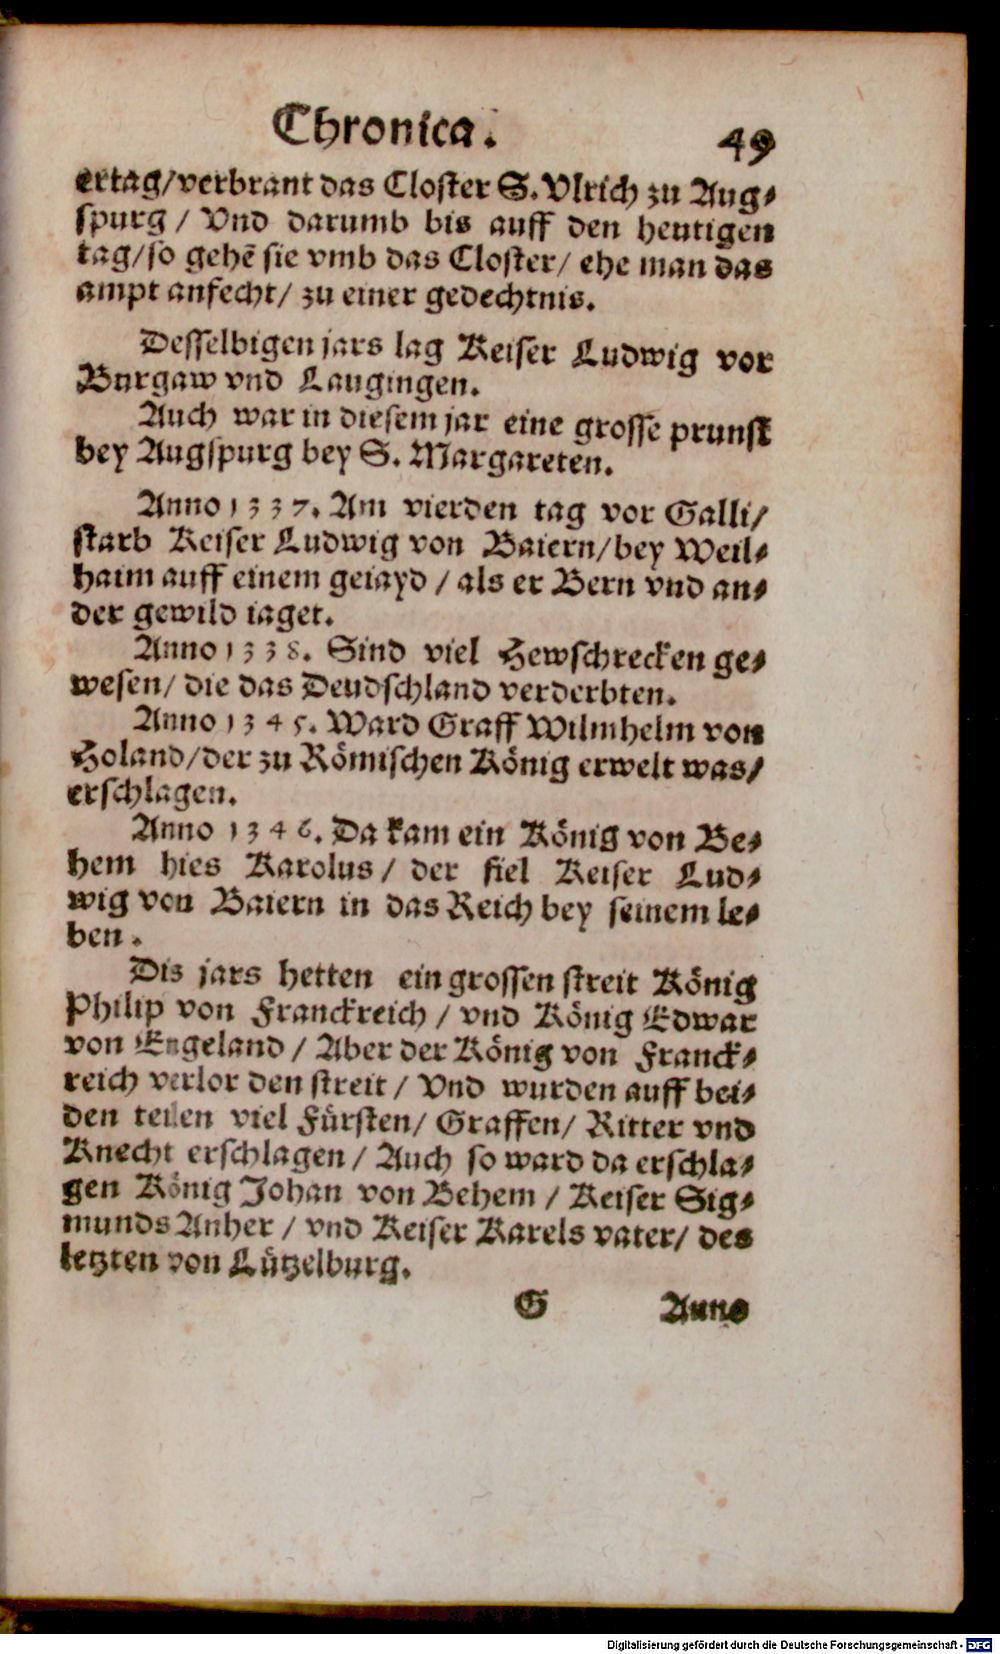 Chronica. 49
ertag/verbrant das Closter S. Vlrich zu Aug⸗
spurg / Vnd darumb bis auff den heutigen
tag/so gehē sie vmb das Closter/ ehe man das
ampt anfecht/ zu einer gedechtnis.
Desselbigen jars lag Keiser Ludwig vor
Burgaw vnd Laugingen.
Auch war in diesem jar eine grosse prunst
bey Augspurg bey S. Margareten.
Anno 1337. Am vierden tag vor Galli/
starb Keiser Ludwig von Baiern/bey Weil⸗
haim auff einem geiayd / als er Bern vnd an⸗
der gewild iaget.
Anno 1338. Sind viel Hewschrecken ge⸗
wesen/ die das Deudschland verderbten.
Anno 1345. Ward Graff Wilmhelm von
Holand/der zu Römischen König erwelt was/
erschlagen.
Anno 1346. Da kam ein König von Be⸗
hem hies Karolus / der fiel Keiser Lud⸗
wig von Baiern in das Reich bey seinem le⸗
ben.
Dis jars hetten ein grossen streit König
Philip von Franckreich / vnd König Edwar
von Engeland / Aber der König von Franck⸗
reich verlor den streit / Vnd wurden auff bei⸗
den teilen viel Fürsten/ Graffen/ Ritter vnd
Knecht erschlagen / Auch so ward da erschla⸗
gen König Johan von Behem / Keiser Sig⸗
munds Anher / vnd Keiser Karels vater/ des
letzten von Lützelburg.
G Anno
Digitalisierung gefördert durch die Deutsche Forschungsgemeinschaft - DFG